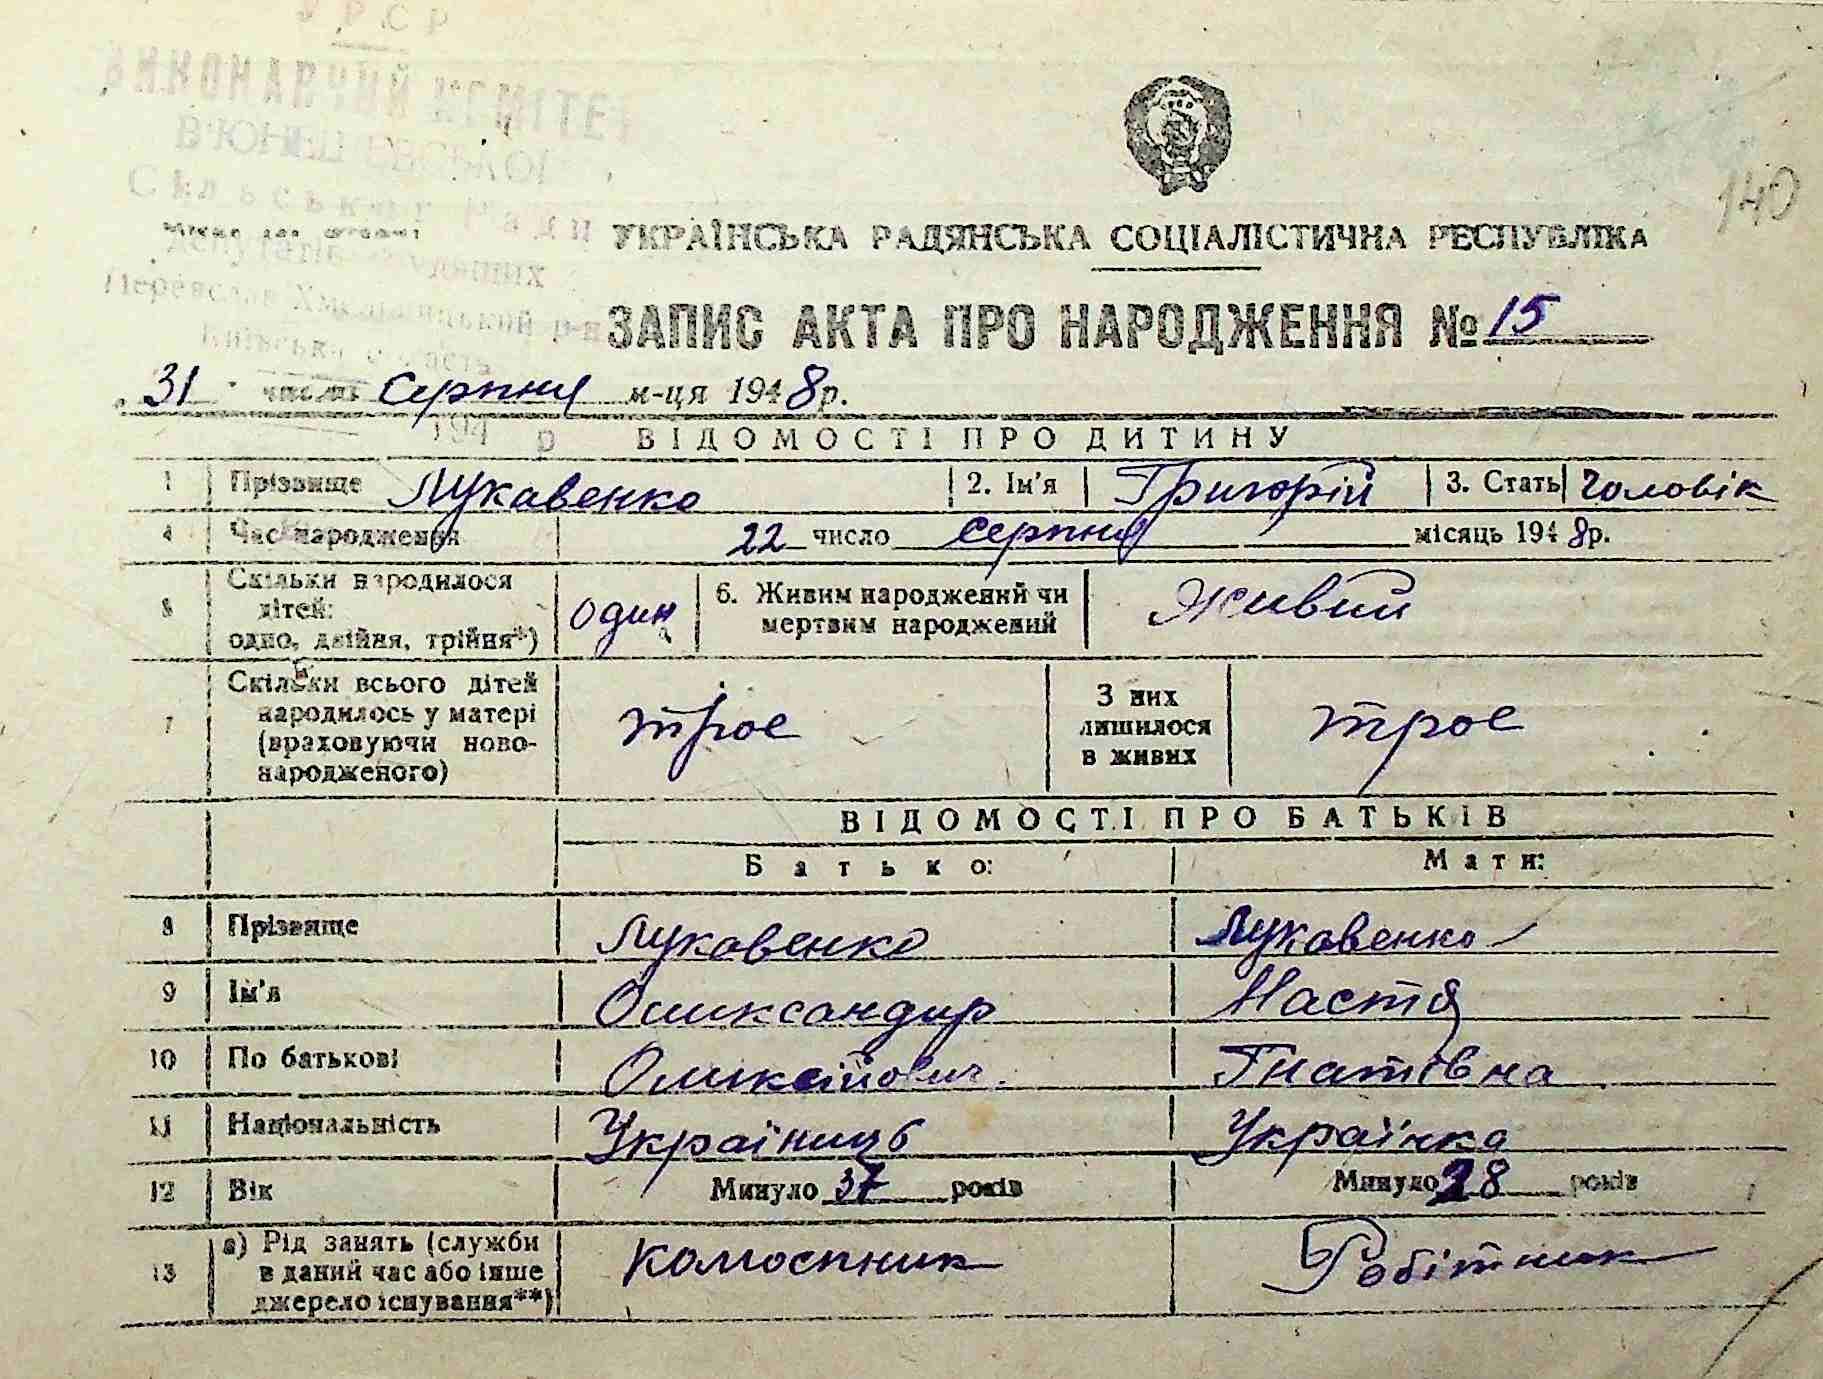 УРСР
ВИКОНАВЧИЙ КОМІТЕТ
В'ЮНИЩЕВСЬКОЇ
Сільської Ради
депутатів трудящих
Переяслав Хмельницький р-н
Київська область
194 р
140
УКРАЇНСЬКА РАДЯНСЬКА СОЦІАЛІСТИЧНА РЕСПУБЛІКА
ЗАПИС АКТА ПРО НАРОДЖЕННЯ № 15
31 числа Серпня м-ця 1948 р.
ВІДОМОСТІ ПРО ДИТИНУ
1 Прізвище Лукавенко 2. Ім'я Григорій 3. Стать Чоловік
4 Час народження 22 число серпня місяць 1948 р.
5 Скільки народилося дітей: одно, двійня, трійня*) один 6. Живим народжений чи мертвим народжений Живий
7 Скільки всього дітей народилось у матері (враховуючи ново-народженого) трое З них лишилося в живих трое
ВІДОМОСТІ ПРО БАТЬКІВ
Батько: Мати:
8 Прізвище Лукавенко Лукавенко
9 Ім'я Оликсандир Настя
10 По батькові Оликсійович. Гнатівна
11 Національність Україниць Українка
12 Вік Минуло 37 років Минуло 28 років
13 а) Рід занять (служби в даний час або інше джерело існування**) Колоспник Робітник